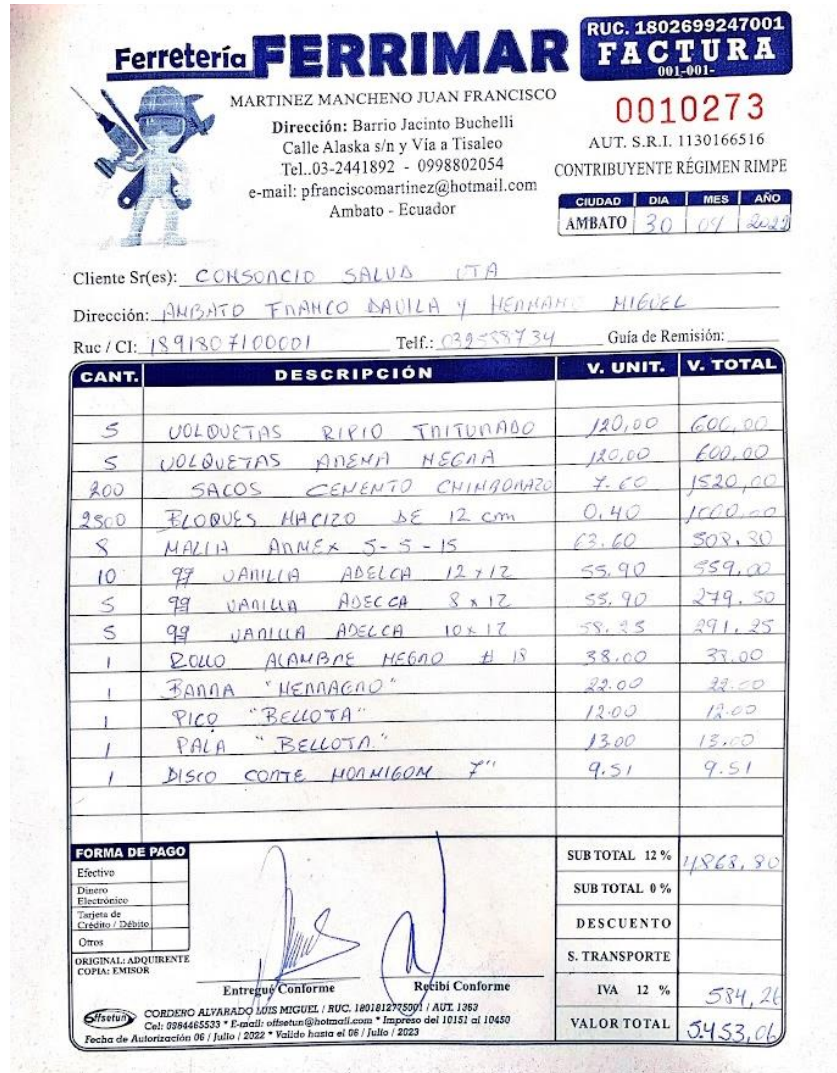 Ferretería FERRIMAR
RUC. 1802699247001
FACTURA
001-001-
0010273
MARTINEZ MANCHENO JUAN FRANCISCO
Dirección: Barrio Jacinto Buchelli
Calle Alaska s/n y Vía a Tisaleo
Tel..03-2441892 - 0998802054
e-mail: pfranciscomartinez@hotmail.com
Ambato - Ecuador
AUT. S.R.I. 1130166516
CONTRIBUYENTE RÉGIMEN RIMPE
CIUDAD DIA MES AÑO
AMBATO 30 09 2022
Cliente Sr(es): CONSORCIO SALUD
Dirección: AMBATO FRANCO DAVILA Y HERMANO MIGUEL
Ruc / CI: 1891807100001 Telf.: Guía de Remisión:
CANT. DESCRIPCIÓN V. UNIT. V. TOTAL
5 VOLQUETAS RIPIO TRITURADO 120,00 600,00
5 VOLQUETAS ARENA NEGRA 120,00 600,00
200 SACOS CEMENTO CHIMBORAZO 7.60 1520,00
2500 BLOQUES MACIZO DE 12 cm 0.40 1000.00
8 MALLA ARMEX 5-5-15 63.60 508.80
10 qq VARILLA ADELCA 12x12 55.90 559,00
5 qq VARILLA ADELCA 8x12 55.90 279.50
5 qq VARILLA ADELCA 10x12 58.25 291.25
1 ROLLO ALAMBRE NEGRO # 18 38.00 38.00
1 BARRA "HERRAGRO" 22.00 22.00
1 PICO "BELLOTA" 12.00 12.00
1 PALA "BELLOTA" 13.00 13.00
1 DISCO CORTE HORMIGON 7" 9.51 9.51
FORMA DE PAGO
Efectivo
Dinero Electrónico
Tarjeta de Crédito / Débito
Otros
ORIGINAL: ADQUIRENTE
COPIA: EMISOR
Entregué Conforme Recibí Conforme
SUB TOTAL 12 % 4868,80
SUB TOTAL 0 %
DESCUENTO
S. TRANSPORTE
IVA 12 % 584,26
VALOR TOTAL 5.453,06
Offsetun CORDERO ALVARADO LUIS MIGUEL / RUC. 1801812775001 / AUT. 1363
Cel: 0984465533 * E-mail: offsetun@hotmail.com * Impreso del 10151 al 10450
Fecha de Autorización 06 / Julio / 2022 * Valido hasta el 06 / Julio / 2023